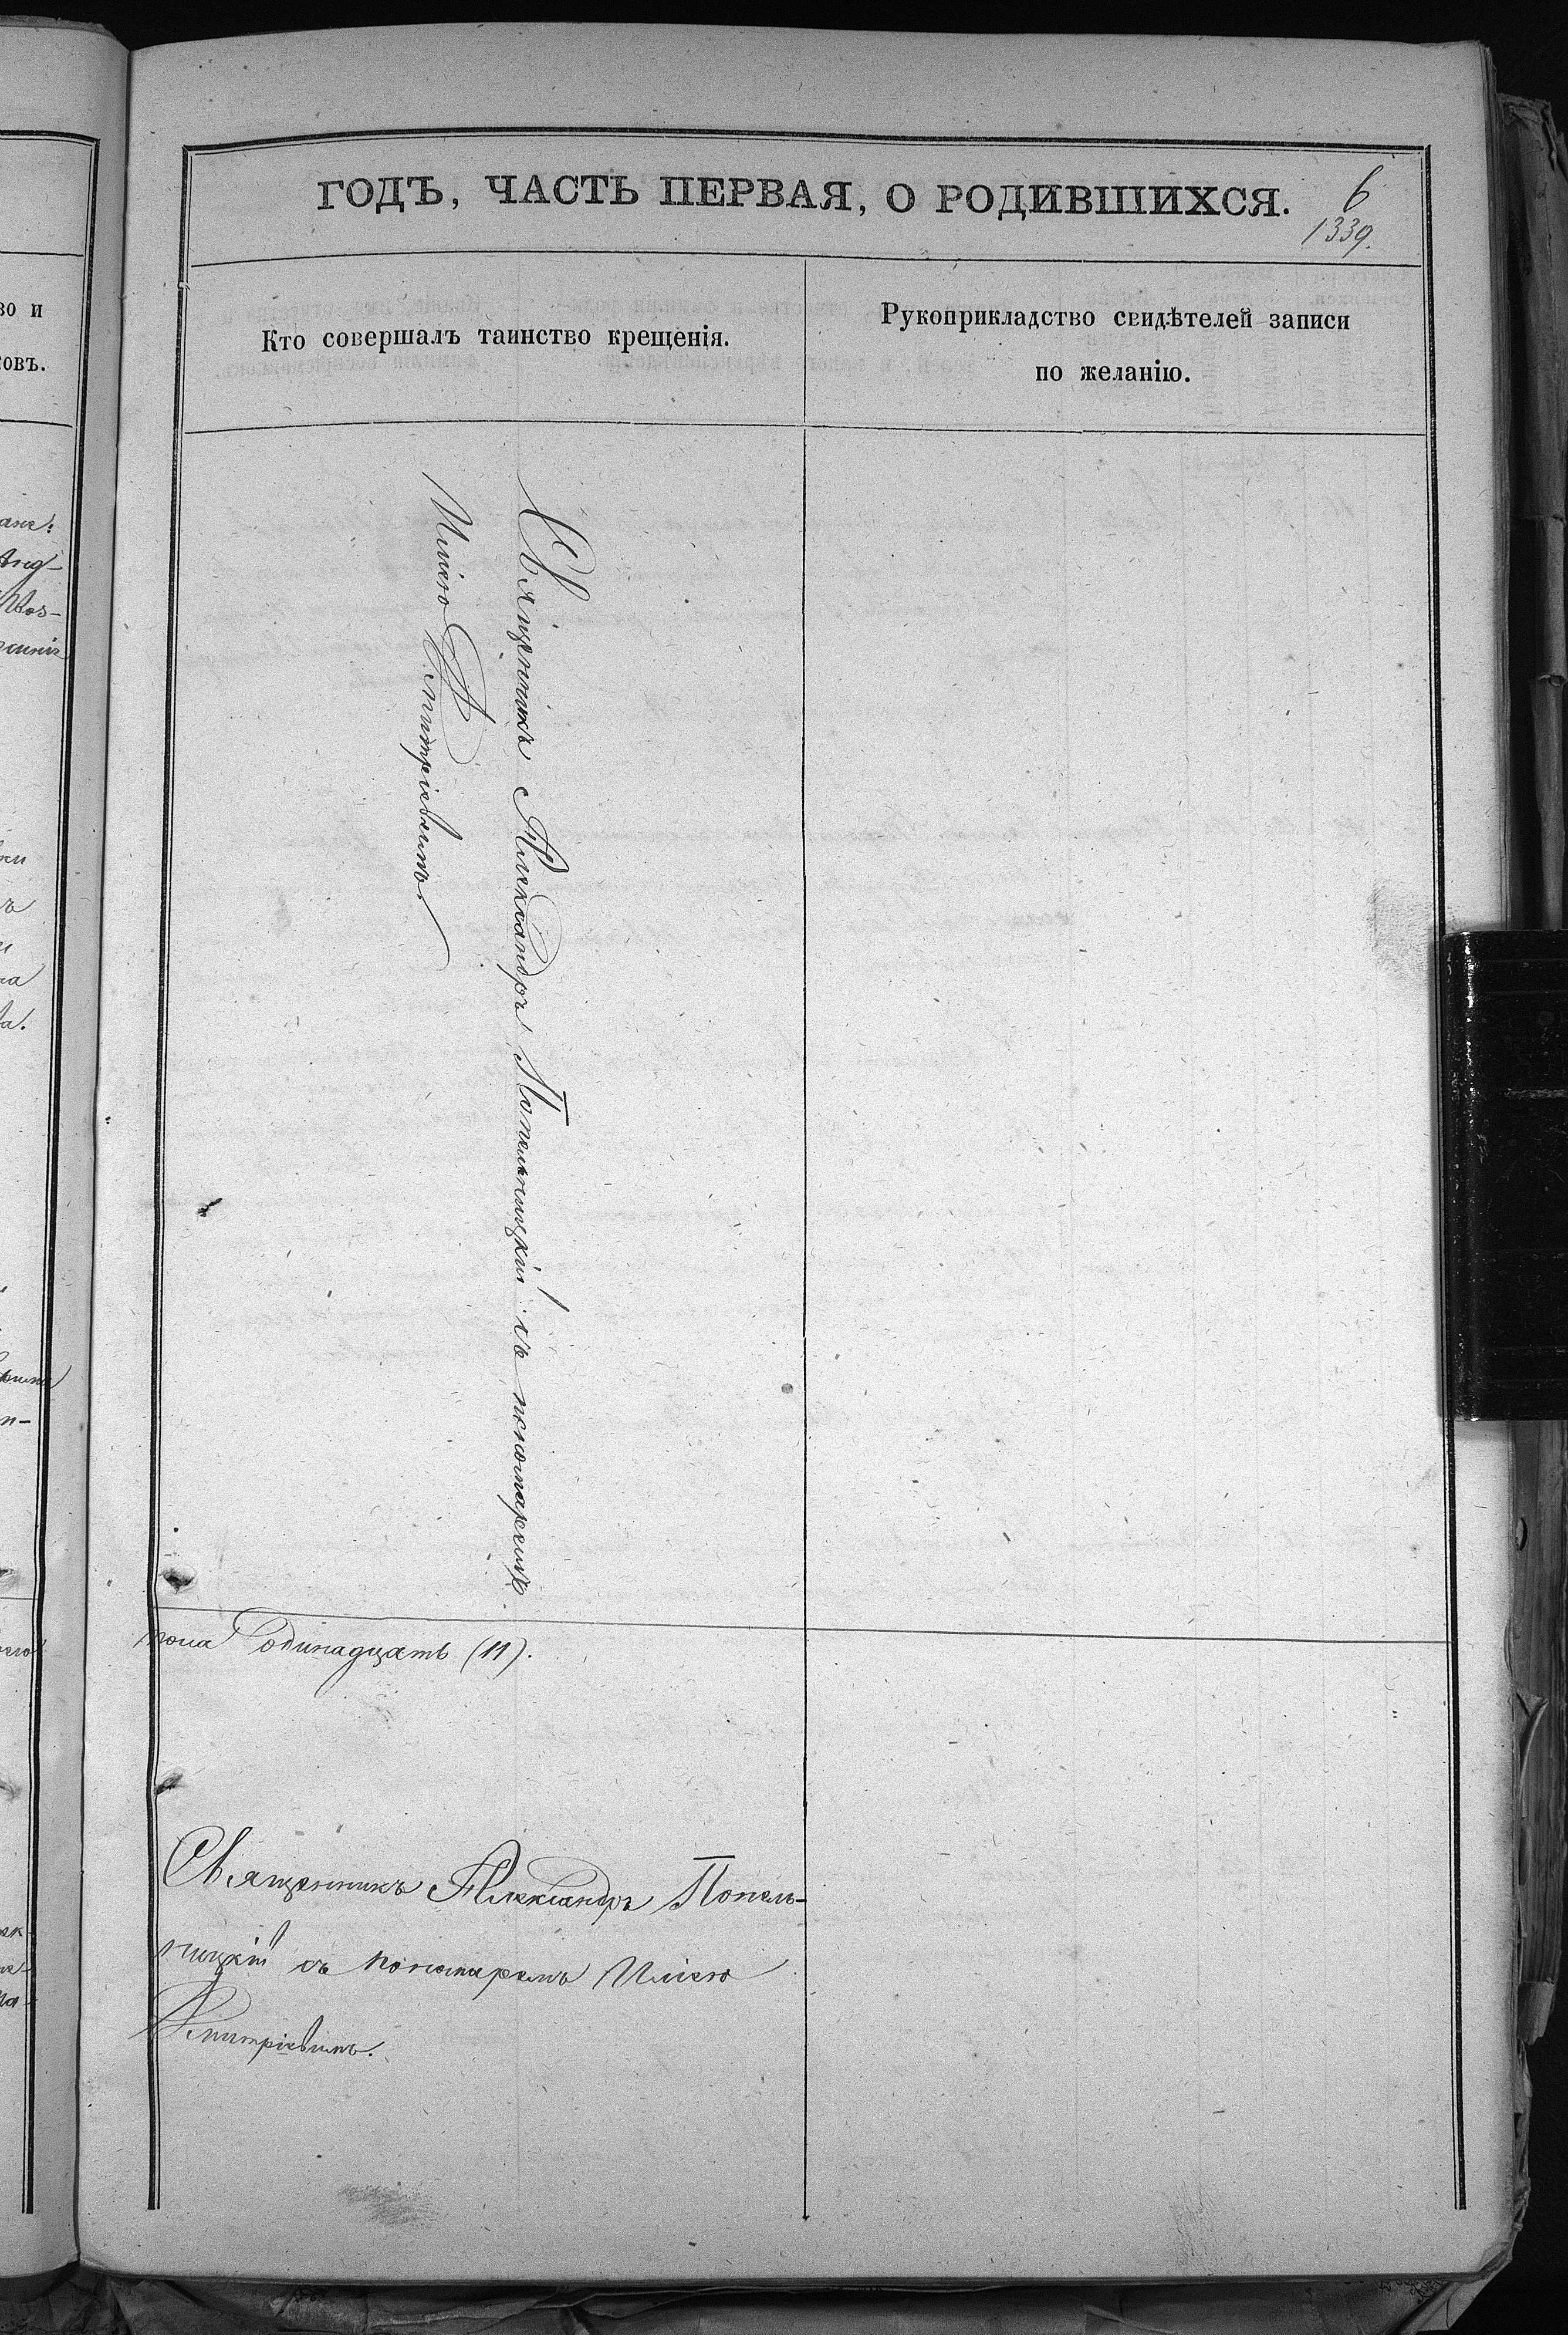 ГОДЪ, ЧАСТЬ ПЕРВАЯ, О РОДИВШИХСЯ.
6
1339.
во и
ковъ.
Кто совершалъ таинство крещенія.
Рукоприкладство свидѣтелей записи
по желанію.
Священникъ Александръ Попельницкій съ пономаремъ
Иліею Дмитріевымъ.
пола одинадцать (11).
Священникъ Александръ Попель-
ницкій съ пономаремъ Иліею
Дмитріевымъ.